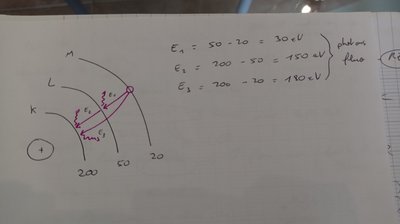 M
L
K
E₁
E₂
E₃
+
200
50
20
E₁ = 50 - 20 = 30 eV
E₂ = 200 - 50 = 150 eV
E₃ = 200 - 20 = 180 eV
photons
fluo